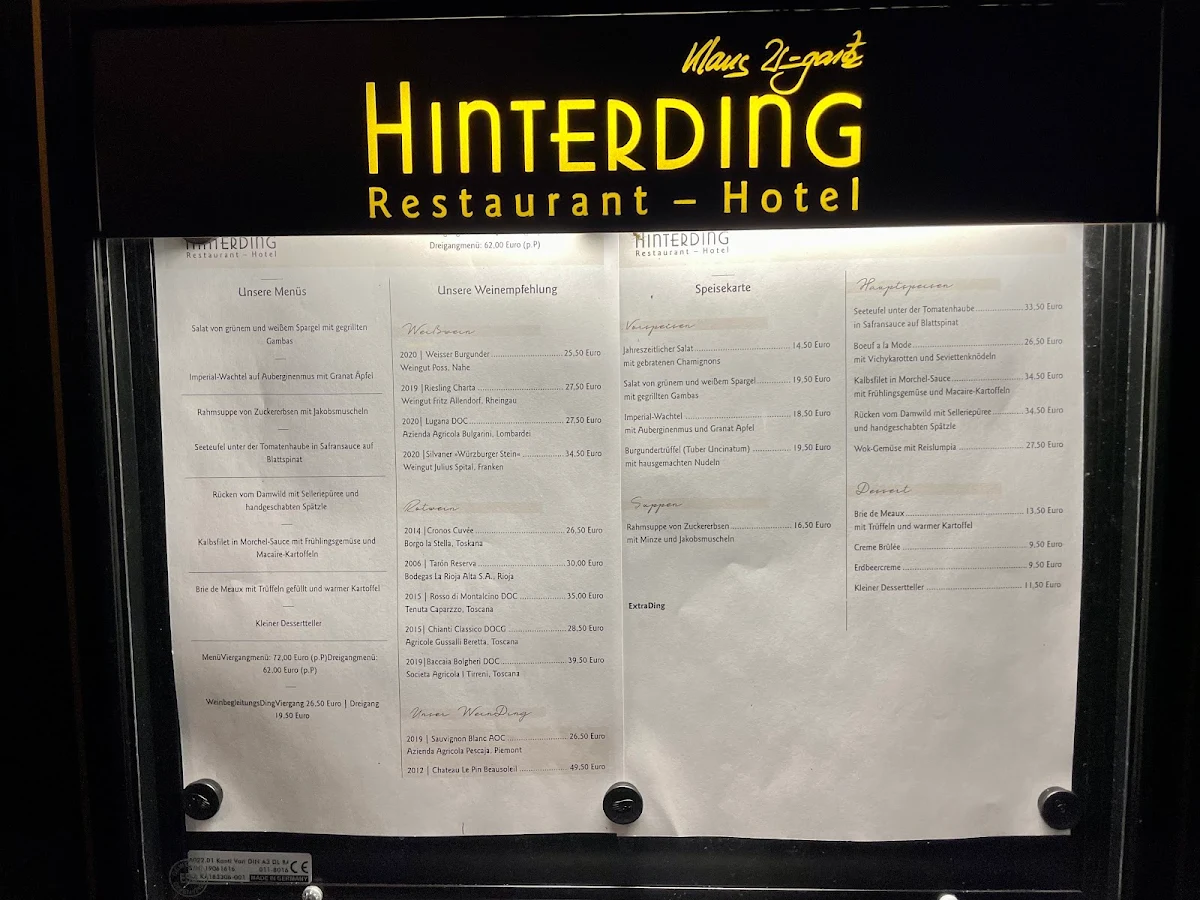 HINTERDING
Restaurant – Hotel
HINTERDING
Restaurant – Hotel
Unsere Menüs
Salat von grünem und weißem Spargel mit gegrillten
Gambas
Imperial-Wachtel auf Auberginenmus mit Granat Äpfel
Rahmsuppe von Zuckererbsen mit Jakobsmuscheln
Seeteufel unter der Tomatenhaube in Safransauce auf
Blattspinat
Rücken vom Damwild mit Selleriepüree und
handgeschabten Spätzle
Kalbsfilet in Morchel-Sauce mit Frühlingsgemüse und
Macaire-Kartoffeln
Brie de Meaux mit Trüffeln gefüllt und warmer Kartoffel
Kleiner Dessertteller
MenüViergangmenü: 72,00 Euro (p.P)Dreigangmenü:
62.00 Euro (p.P)
WeinbegleitungsDingViergang 26.50 Euro | Dreigang
19.50 Euro
Dreigangmenü: 62.00 Euro (p.P)
Unsere Weinempfehlung
Weißwein
2020 | Weisser Burgunder 25,50 Euro
Weingut Poss, Nahe
2019 |Riesling Charta 27,50 Euro
Weingut Fritz Allendorf, Rheingau
2020| Lugana DOC 27,50 Euro
Azienda Agricola Bulgarini, Lombardei
2020 |Silvaner »Würzburger Stein« 34,50 Euro
Weingut Julius Spital, Franken
Rotwein
2014 |Cronos Cuvée 26,50 Euro
Borgo la Stella, Toskana
2006 | Tarón Reserva 30,00 Euro
Bodegas La Rioja Alta S.A., Rioja
2015 | Rosso di Montalcino DOC 35,00 Euro
Tenuta Caparzzo, Toscana
2015| Chianti Classico DOCG 28,50 Euro
Agricole Gussalli Beretta, Toscana
2019|Baccaia Bolgheri DOC 39,50 Euro
Societa Agricola I Tirreni, Toscana
Unser WeinDing
2019 | Sauvignon Blanc AOC 26,50 Euro
Azienda Agricola Pescaja, Piemont
2012 | Chateau Le Pin Beausoleil 49,50 Euro
HINTERDING
Restaurant – Hotel
Speisekarte
Vorspeisen
Jahreszeitlicher Salat 14,50 Euro
mit gebratenen Chamignons
Salat von grünem und weißem Spargel 19,50 Euro
mit gegrillten Gambas
Imperial-Wachtel 18,50 Euro
mit Auberginenmus und Granat Apfel
Burgundertrüffel (Tuber Uncinatum) 19,50 Euro
mit hausgemachten Nudeln
Suppen
Rahmsuppe von Zuckererbsen 16,50 Euro
mit Minze und Jakobsmuscheln
ExtraDing
Hauptspeisen
Seeteufel unter der Tomatenhaube 33,50 Euro
in Safransauce auf Blattspinat
Boeuf a la Mode 26,50 Euro
mit Vichykarotten und Seviettenknödeln
Kalbsfilet in Morchel-Sauce 34,50 Euro
mit Frühlingsgemüse und Macaire-Kartoffeln
Rücken vom Damwild mit Selleriepüree 34,50 Euro
und handgeschabten Spätzle
Wok-Gemüse mit Reislumpia 27,50 Euro
Dessert
Brie de Meaux 13,50 Euro
mit Trüffeln und warmer Kartoffel
Creme Brûlée 9,50 Euro
Erdbeercreme 9,50 Euro
Kleiner Dessertteller 11,50 Euro
CE
MADE IN GERMANY